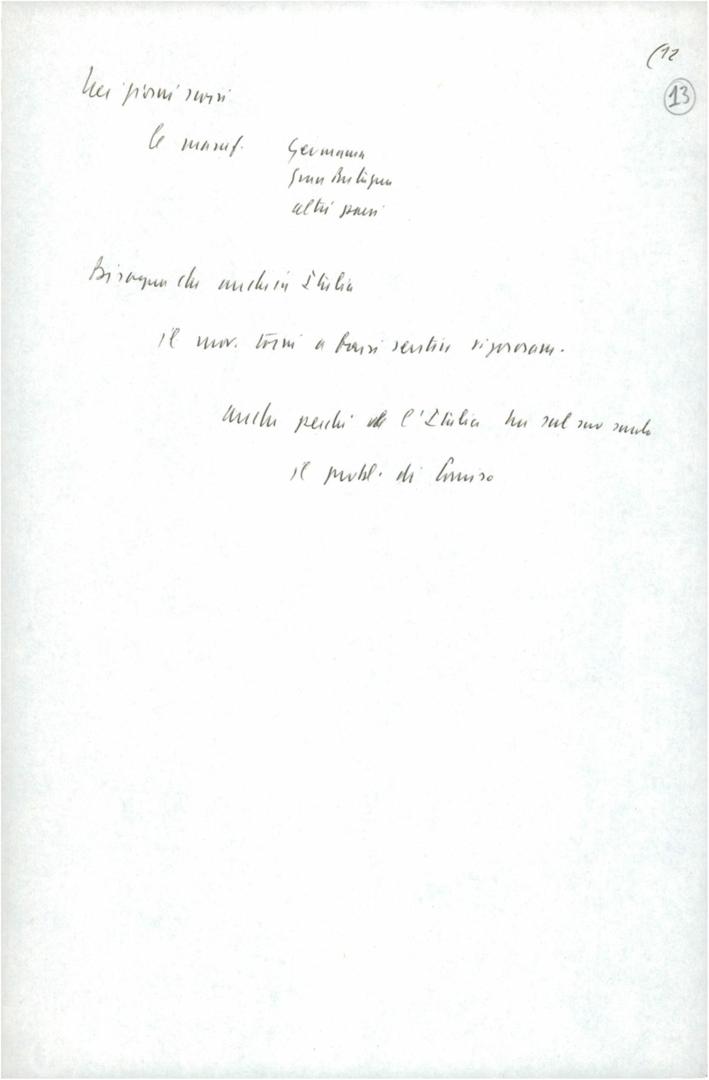 (12
13
Nei giorni scorsi
le manif. Germania
Gran Bretagna
altri paesi
Bisogna che anche in Italia
il mov. torni a farsi sentire vigorosam.
anche perché l'Italia ha sul suo suolo
il probl. di Comiso